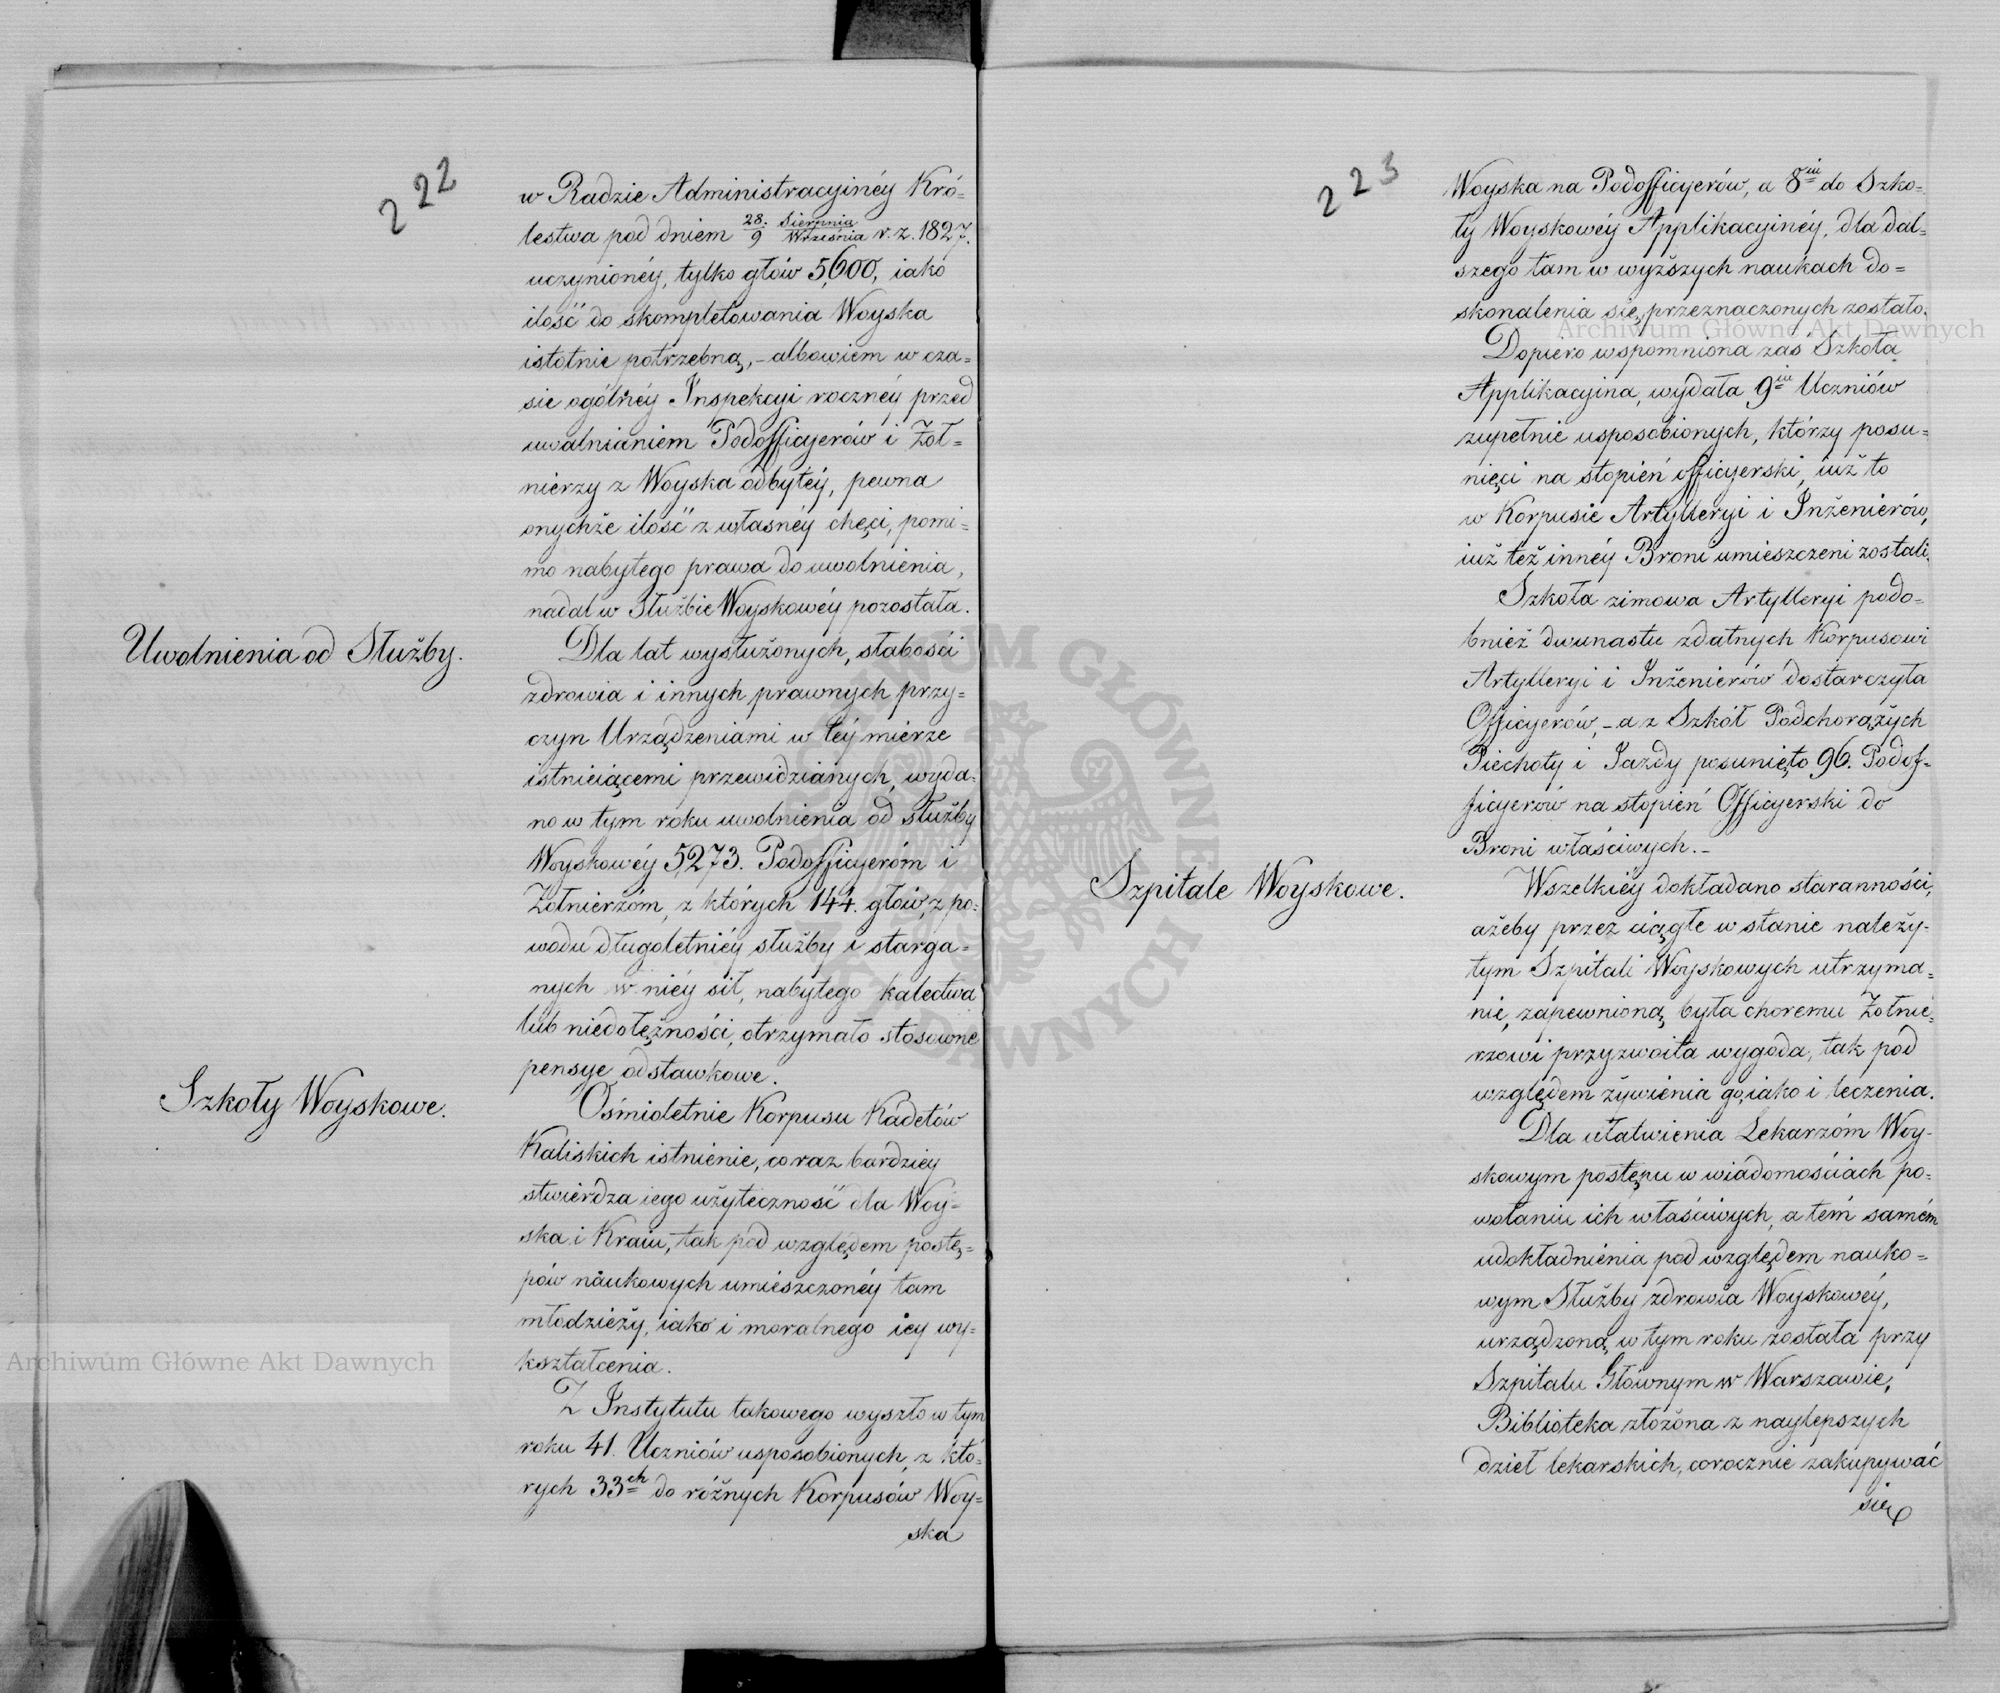 222
w Radzie Administracyinéy Kró=
lestwa pod dniem 28. Sierpnia / 9 Września r. z. 1827.
uczynionéy, tylko głów 5,600, iako
ilość do skompletowania Woyska
istotnie potrzebną, – albowiem w cza=
sie ogólnéy Inspekcyi rocznéy przed
uwalnianiem Podofficyerów i Żoł=
nierzy z Woyska odbytéy, pewna
onychże ilość z własnéy chęci, pomi=
mo nabytego prawa do uwolnienia,
nadal w Służbie Woyskowéy pozostała.
Uwolnienia od Służby.
Dla lat wysłużonych, słabości
zdrowia i innych prawnych przy=
czyn Urządzeniami w téy mierze
istnieiącemi przewidzianych, wyda=
no w tym roku uwolnienia od służby
Woyskowéy 5,273. Podofficyeróm i
Żołnierzóm, z których 144. głów, z po=
wodu długoletniéy służby i starga=
nych w niéy sił, nabytego kalectwa
lub niedołężności, otrzymało stosowne
pensye odstawkowe.
Szkoły Woyskowe.
Ośmioletnie Korpusu Kadetów
Kaliskich istnienie, coraz bardziey
stwierdza iego użyteczność dla Woy=
ska i Kraiu, tak pod względem postę=
pów naukowych umieszczonéy tam
młodzieży, iako i moralnego iey wy=
kształcenia.
Z Instytutu takowego wyszło w tym
roku 41. Uczniów usposobionych, z któ=
rych 33ch do różnych Korpusów Woy=
ska
223
Woyska na Podofficyerów, a 8iu do Szko=
ły Woyskowéy Applikacyinéy, dla dal=
szego tam w wyższych naukach do=
skonalenia się, przeznaczonych zostało.
Dopiero wspomniona zaś Szkoła
Applikacyina, wydała 9iu Uczniów
zupełnie usposobionych, którzy posu=
nięci na stopień officyerski, iuż to
w Korpusie Artylleryi i Inżenierów,
iuż też innéy Broni umieszczeni zostali.
Szkoła zimowa Artylleryi podo=
bnież dwunastu zdatnych Korpusowi
Artylleryi i Inżenierów dostarczyła
Officyerów, – a z Szkół Podchorążych
Piechoty i Jazdy posunięto 96. Podof=
ficyerów na stopień Officyerski do
Broni właściwych. –
Szpitale Woyskowe.
Wszelkiéy dokładano staranności,
ażeby przez ciągłe w stanie należy=
tym Szpitali Woyskowych utrzyma=
nie, zapewnioną była choremu Żołnie=
rzowi przyzwoita wygoda, tak pod
względem żywienia go, iako i leczenia.
Dla ułatwienia Lekarzóm Woy=
skowym postępu w wiadomościach po=
wołaniu ich właściwych, a tém samém
udokładnienia pod względem nauko=
wym Służby zdrowia Woyskowéy,
urządzoną w tym roku została przy
Szpitalu Głównym w Warszawie,
Biblioteka złożona z naylepszych
dzieł lekarskich, corocznie zakupywać
się
Archiwum Główne Akt Dawnych
Archiwum Główne Akt Dawnych
ARCHIWUM GŁÓWNE AKT DAWNYCH